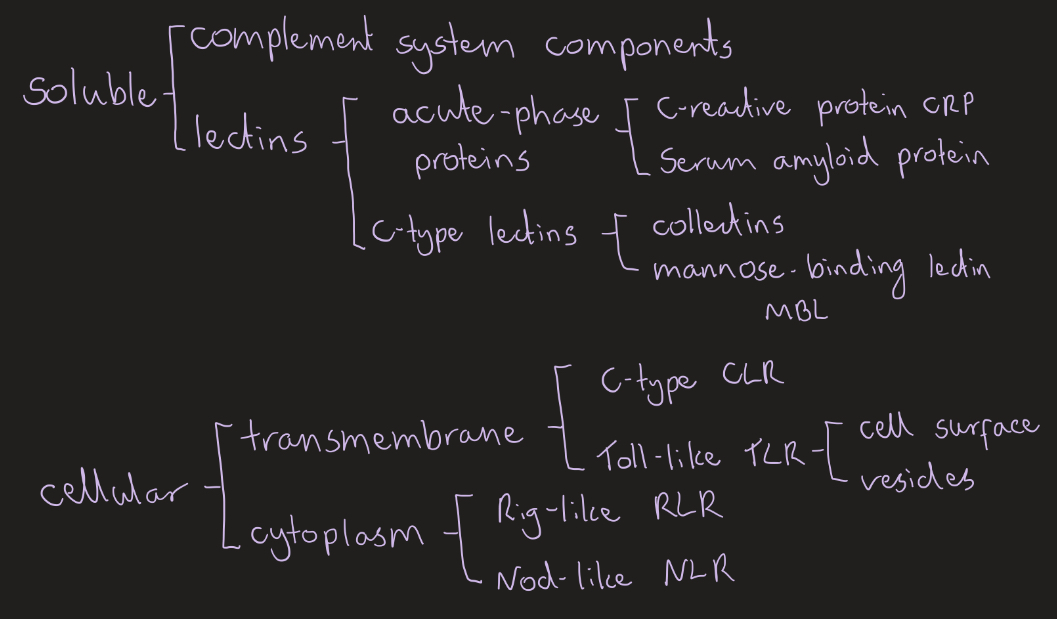 soluble
complement system components
lectins
acute-phase
proteins
C-reactive protein CRP
Serum amyloid protein
C-type lectins
collectins
mannose-binding lectin
MBL
cellular
transmembrane
C-type CLR
Toll-like TLR
cell surface
vesicles
cytoplasm
Rig-like RLR
Nod-like NLR